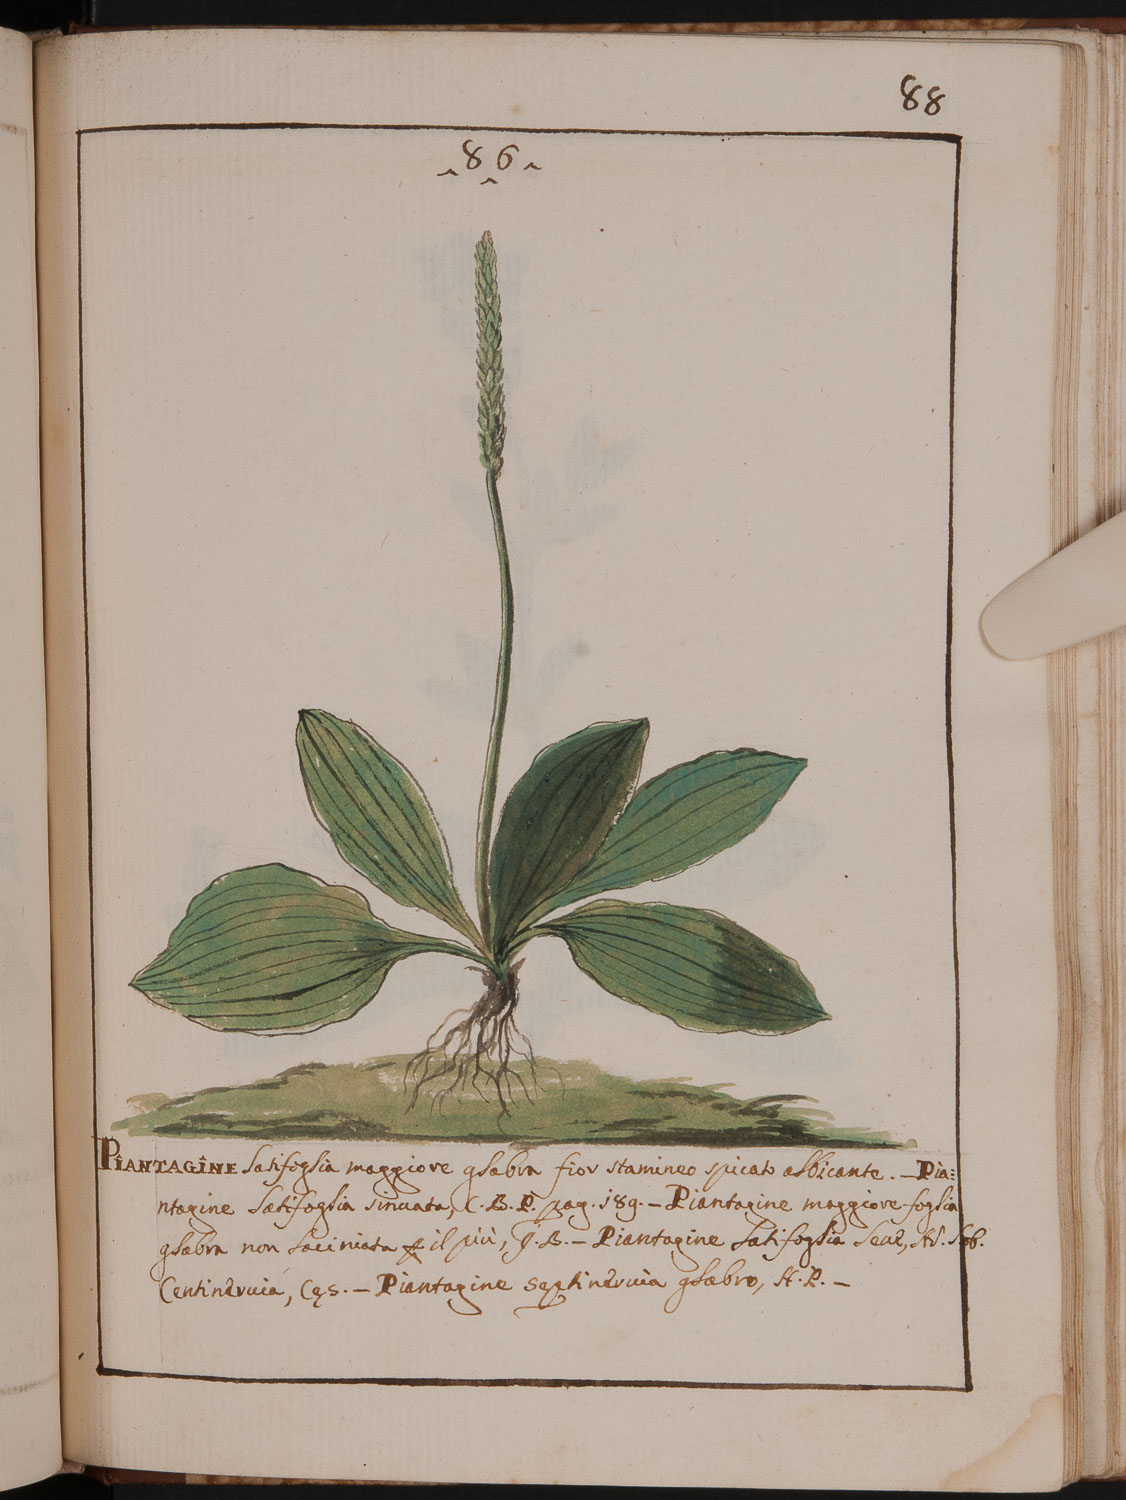 88
86
PIANTAGINE latifoglia maggiore glabra fior stamineo spicato albicante. – Pia=
ntagine latifoglia sinuata, C.B.P. pag. 189. – Piantagine maggiore foglia
glabra non laciniata il più, J.B. – Piantagine latifoglia
Centinervia, Cęs. – Piantagine septinervia glabra, H.P. –